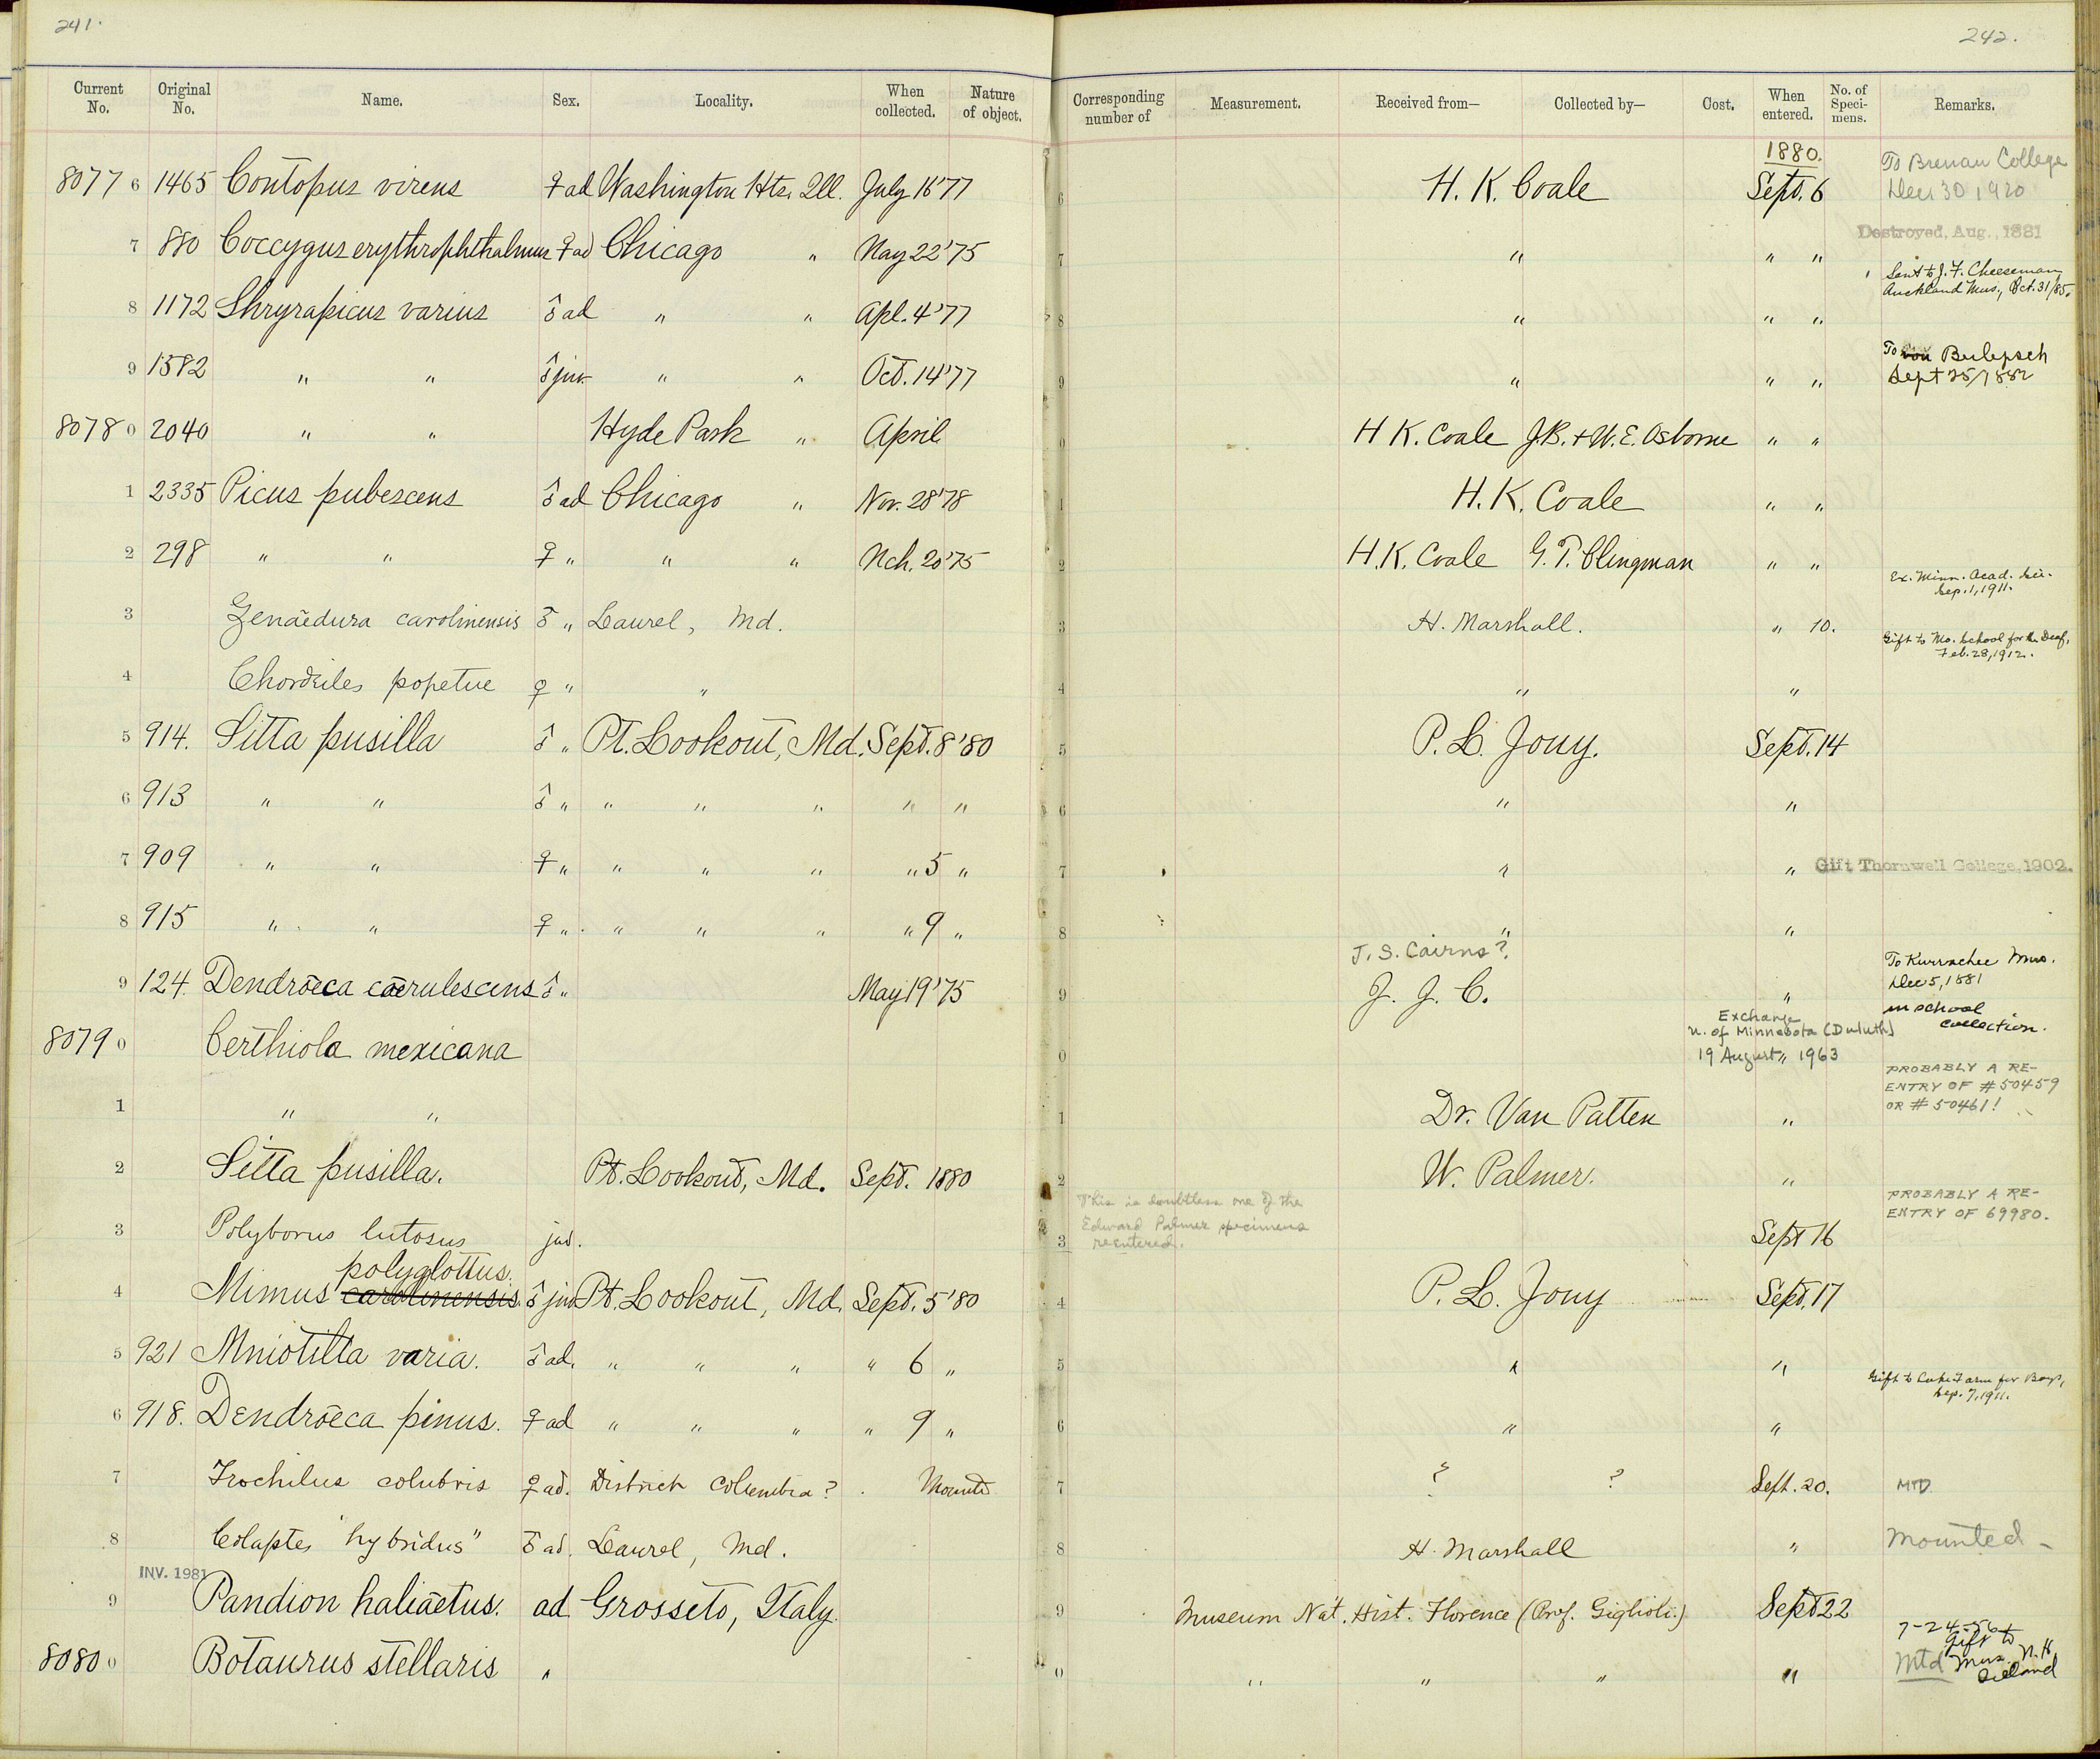 241.
242.
Current No. Original No. Name. Sex. Locality. When collected. Nature of object. Corresponding number of Measurement. Received from— Collected by— Cost. When entered. No. of Speci-mens. Remarks.
1880.
8077 6 1465 Contopus virens ♀ ad Washington Hts. Ill. July 16'77 6 H. K. Coale Sept. 6 To Brenau College
Dec. 30 1920
Destroyed, Aug., 1881
7 880 Coccygus erythrophthalmus ♀ ad Chicago " May 22'75 7 " " "
Sent to J. F. Cheeseman
Auckland Mus., Oct. 31/85.
8 1172 Shryrapicus varius ♂ ad " " Apl. 4'77 8 " " "
9 1582 " " ♂ juv " " Oct. 14'77 9 " " " To von Berlepsch
Sept 25/1882
8078 0 2040 " " Hyde Park " April 0 H K. Coale J.B. + W. E. Osborne " "
1 2335 Picus pubescens ♂ ad Chicago " Nov. 28'78 1 H. K. Coale " "
2 298 " " ♀ " " " Mch. 20'75 2 H. K. Coale G. T. Clingman " "
Ex. Minn. Acad. Sci.
Sep. 1, 1911.
3 Zenaedura carolinensis ♂ " Laurel, Md. 3 H. Marshall. " 10.
Gift to Mo. School for the Deaf,
Feb. 28, 1912.
4 Chordeiles popetue ♀ " " 4 " "
5 914. Sitta pusilla ♂ " Pt. Lookout, Md. Sept. 8'80 5 P. L. Jouy. Sept. 14
6 913 " " ♂ " " " " " " 6 " "
7 909 " " ♀ " " " " " 5 " 7 " " Gift Thornwell College, 1902.
8 915 " " ♀ " " " " " 9 " 8 " "
J. S. Cairns?
9 124 Dendroeca caerulescens ♂ " May 19'75 9 J. J. C. " To Kurrachee Mus.
Dec 5, 1881
in school
collection.
Exchange
U. of Minnesota (Duluth)
19 August 1963
8079 0 Certhiola mexicana 0 "
PROBABLY A RE-
ENTRY OF #50459
OR #50461!
1 " " 1 Dr. Van Patten "
2 Sitta pusilla. Pt. Lookout, Md. Sept. 1880 2 W. Palmer. "
This is doubtless one of the
Edward Palmer specimens
reentered.
PROBABLY A RE-
ENTRY OF 69980.
3 Polyborus lutosus juv. 3 Sept 16
polyglottus.
4 Mimus carolinensis. ♂ juv Pt. Lookout, Md. Sept. 5'80 4 P. L. Jouy Sept. 17
5 921 Mniotilta varia. ♂ ad. " " " " 6 " 5 " "
Gift to Farm for Boys,
Sep. 7, 1911.
6 918. Dendroeca pinus. ♀ ad " " " " 9 " 6 " "
7 Trochilus colubris ♀ ad. District Columbia? Mounted 7 ? ? Sept. 20. MTD
8 Colaptes "hybridus" ♂ ad. Laurel, Md. 8 H. Marshall " Mounted -
INV. 1981
9 Pandion haliaetus. ad Grosseto, Italy. 9 Museum Nat. Hist. Florence (Prof. Giglioli.) Sept 22
8080 0 Botaurus stellaris " 0 " " " " Mtd
7-24-56
Gift to
Mus. N. H.